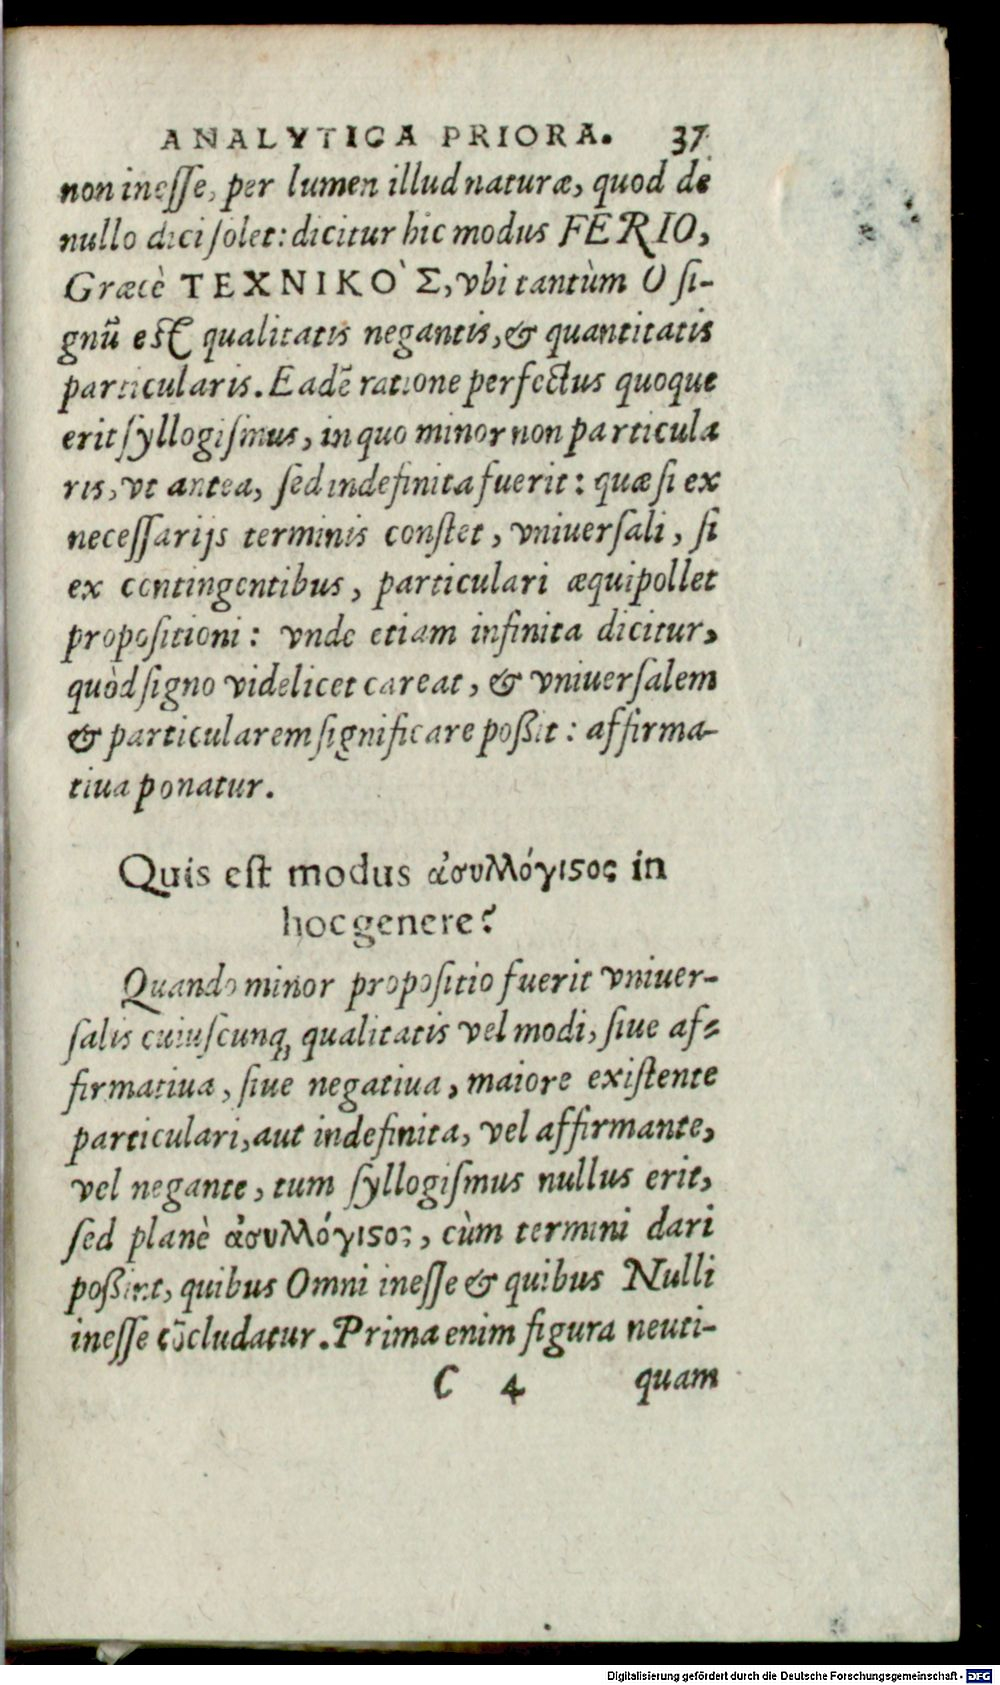 ANALYTICA PRIORA. 37
non inesſe, per lumen illud naturæ, quod de
nullo dici ſolet: dicitur hic modus FERIO,
Græcè ΤΕΧΝΙΚΟ`Σ, vbi tantùm O ſi-
gnū eſt qualitatis negantis, & quantitatis
particularis. Eadē ratione perfectus quoque
erit ſyllogiſmus, in quo minor non particula
ris, vt antea, ſed indefinita fuerit: quæ ſi ex
neceſſarijs terminis conſtet, vniuerſali, ſi
ex contingentibus, particulari æquipollet
propoſitioni: vnde etiam infinita dicitur,
quòd ſigno videlicet careat, & vniuerſalem
& particularem ſignificare poßit: affirma-
tiua ponatur.
Quis eſt modus ἀσυλλόγιϛος in
hoc genere?
Quando minor propoſitio fuerit vniuer-
ſalis cuiuſcunq; qualitatis vel modi, ſiue af-
firmatiua, ſiue negatiua, maiore exiſtente
particulari, aut indefinita, vel affirmante,
vel negante, tum ſyllogiſmus nullus erit,
ſed planè ἀσυλλόγιϛος, cùm termini dari
poßint, quibus Omni ineſſe & quibus Nulli
ineſſe cōcludatur. Prima enim figura neuti-
C 4 quam
Digitalisierung gefördert durch die Deutsche Forschungsgemeinschaft - DFG